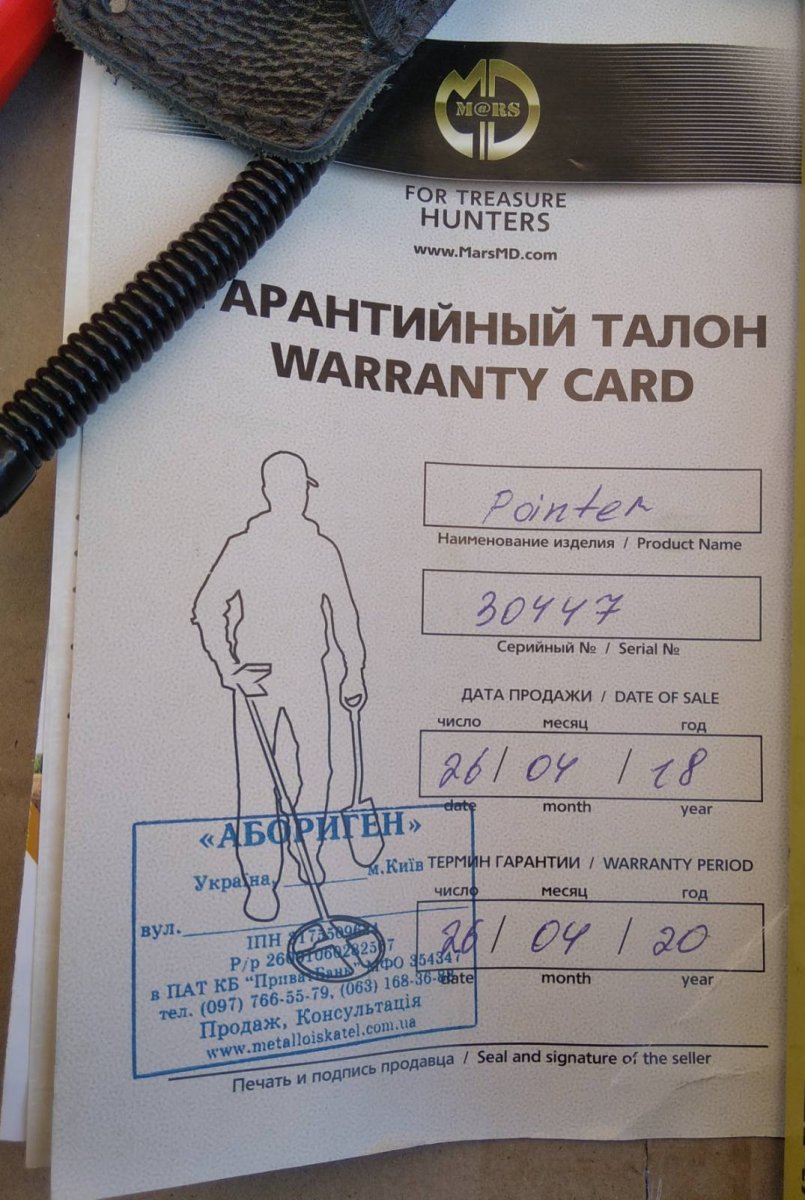 M@RS
FOR TREASURE
HUNTERS
www.MarsMD.com
ГАРАНТИЙНЫЙ ТАЛОН
WARRANTY CARD
Pointer
Наименование изделия / Product Name
30447
Серийный № / Serial №
ДАТА ПРОДАЖИ / DATE OF SALE
число месяц год
26 / 04 / 18
date month year
ТЕРМИН ГАРАНТИИ / WARRANTY PERIOD
число месяц год
26 / 04 / 20
date month year
«АБОРИГЕН»
Україна, ________ м.Київ
вул.
ІПН
Р/р
в ПАТ КБ "ПриватБанк" МФО 354347
тел. (097) 766-55-79, (063) 168-36-88
Продаж, Консультація
www.metalloiskatel.com.ua
Печать и подпись продавца / Seal and signature of the seller